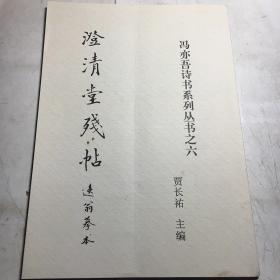 冯亦吾诗书系列丛书之六
贾长祐 主编
澄清堂殘帖
遠翁摹本